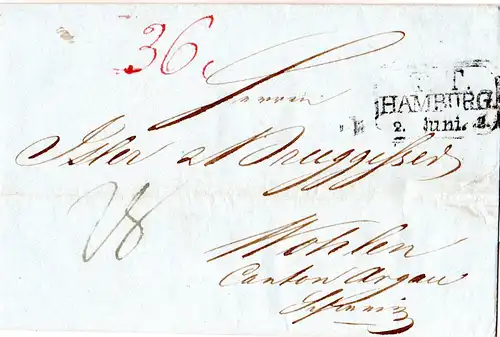 36
T. T.
HAMBURG
2. Juni. 2.
Herren
Isler & Bruggisser
28
Wohlen
Canton Argau
Schweiz